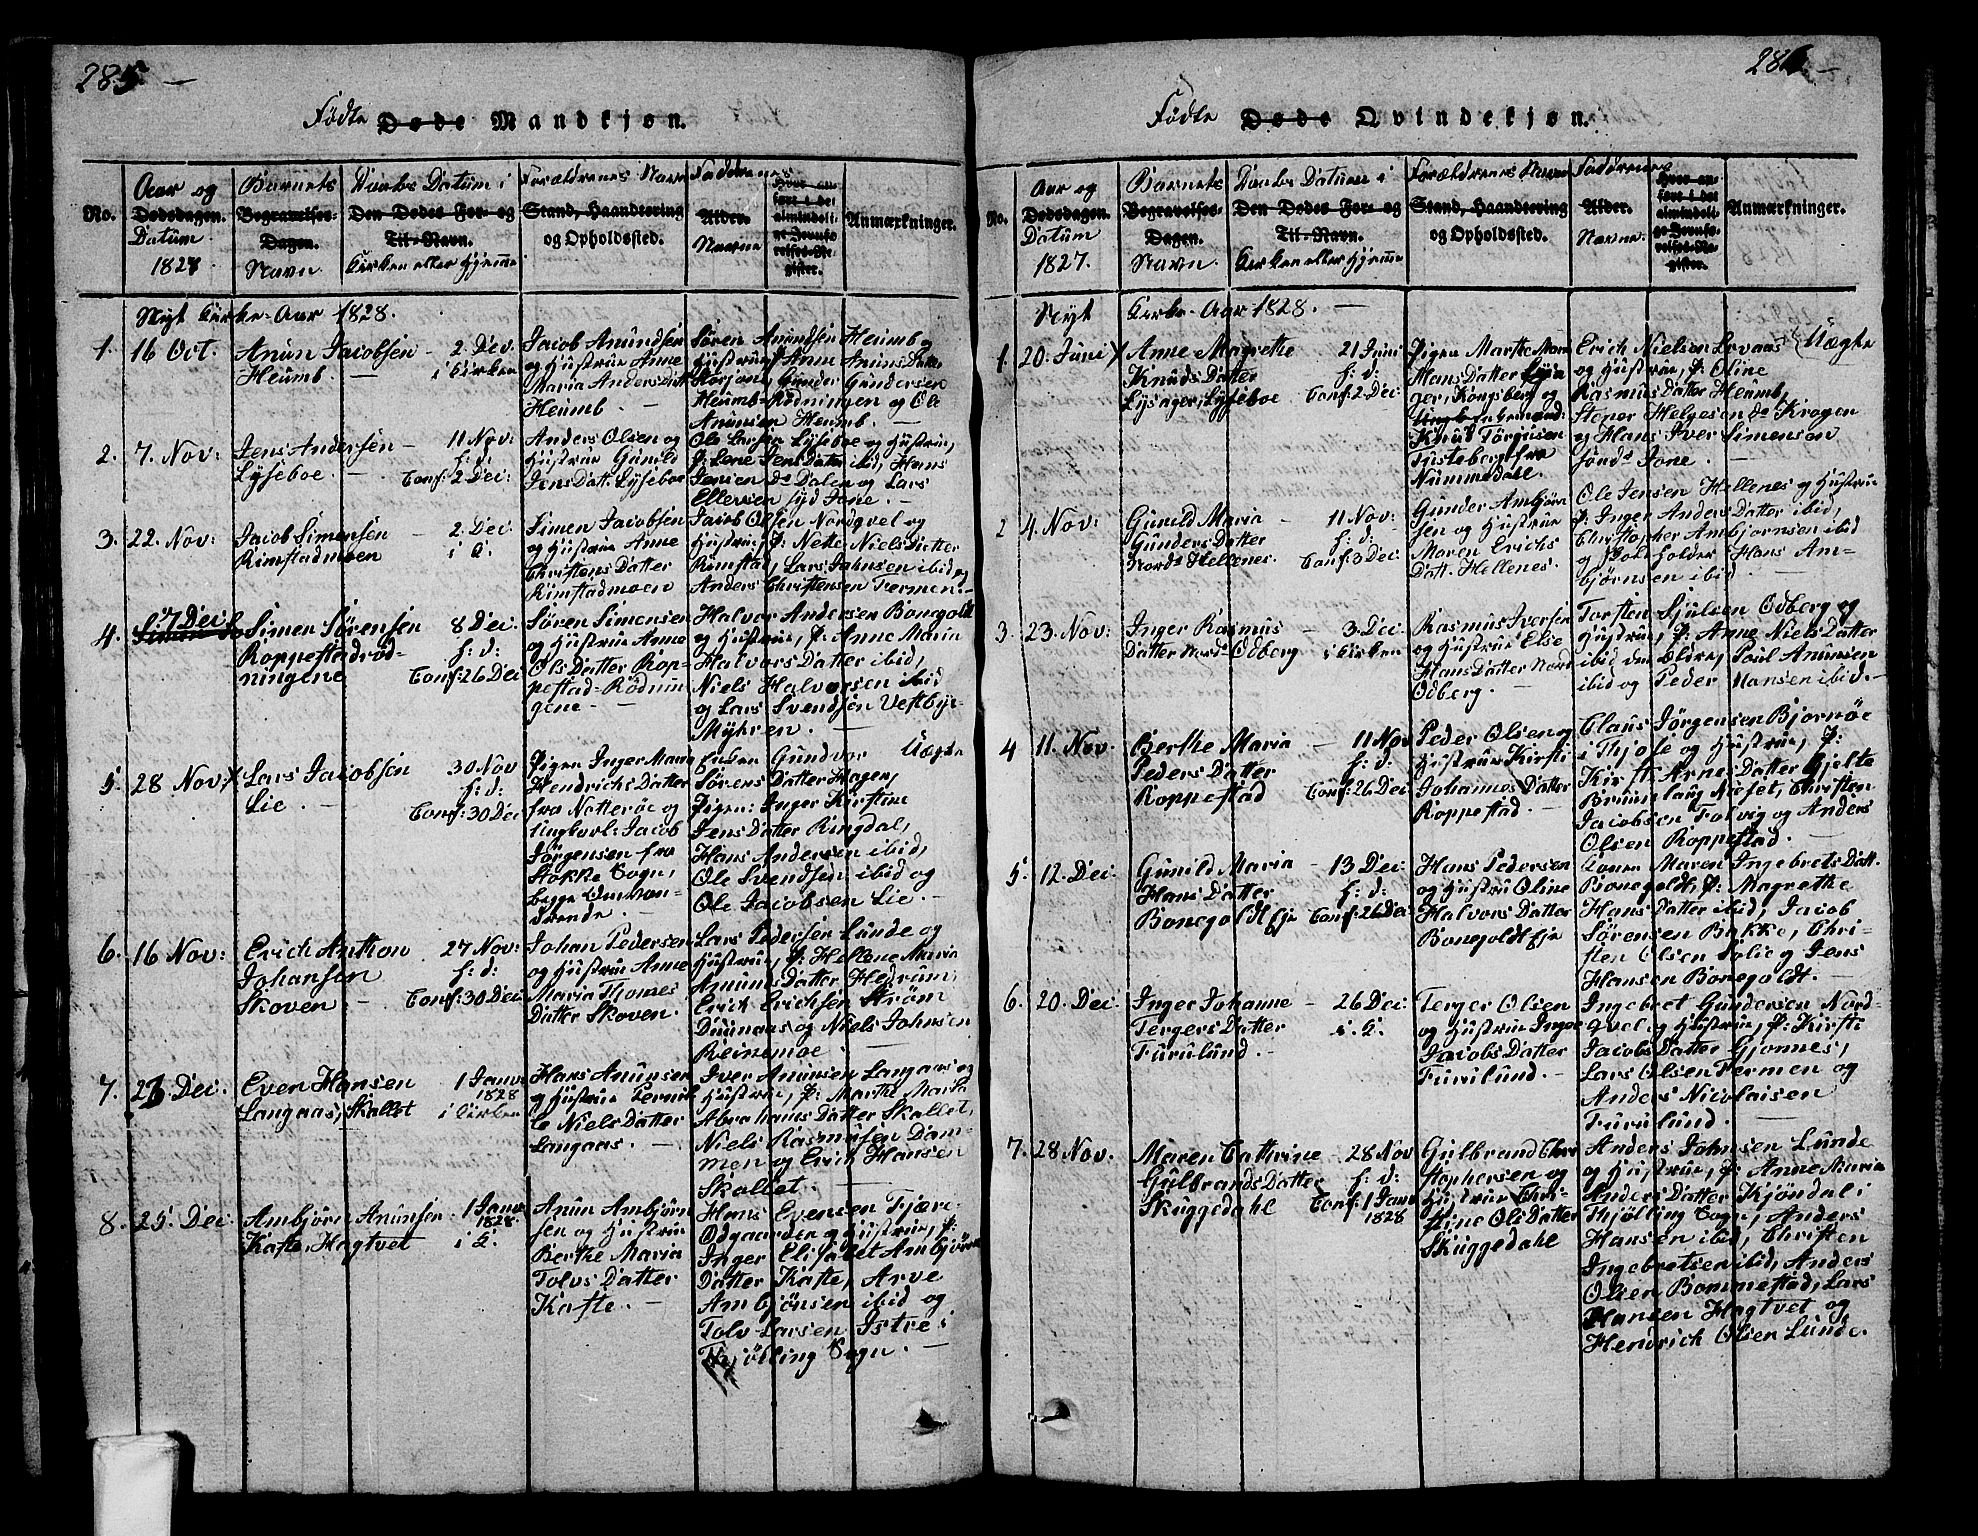 285 —
Fødte Døde Mandkjøn.
No.
Aar og
Dødsdagen.
Datum
1827
Barnets
Begravelses-
Dagen.
Navn
Daabs Datum i
Den Dødes For- og
Til-Navn.
Kirken eller Hjemme
Forældrenes Navn
Stand, Haandtering
og Opholdssted.
Faddernes
Alder.
Navne
Hvor an-
ført i det
almindeli-
ge Jevnfø-
relses-Re-
gister.
Anmærkninger.
Nyt Kirke-Aar 1828.
1. 16 Oct.
Anun Jacobsen
Heumb. —
2 Dec.
i Kirken
Jacob Anundsen
og Hustrue Anne
Maria Anders Datt
Heumb. —
Søren Anundsen Heumb og
Hustrue, Anne Anuns Datter
Gunder Gundersen
Heumb-Rødningen og Ole
Anunsen Heumb. —
2. 7. Nov:
Jens Andersen —
Lyseboe. —
11 Nov:
h: d:
Conf: 2 Dec:
Anders Olsen og
Hustrue Gunild
Jens Datt. Lyseboe
Ole Larsen Lyseboe og Hustrue,
P: Lene Jens Datter ibid, Hans
Jensen Dalen og Lars
Ellevsen syd Jone. —
3. 22. Nov:
Jacob Simensen
Rimstadmoen
2 Dec.
i K.
Simen Jacobsen
og Hustrue Anne
Christens Datter
Rimstadmoen
Jacob Olsen Nordqvel og
Hustrue, P: Nette Niels Datter
Rimstad, Lars Johnsen ibid og
Anders Christensen Fermen. —
4. 7 Dec:
Simen Sørensen
Roppestadrød-
ningene
8 Dec:
h: d:
Conf: 26 Dec
Søren Simensen
og Hustrue Anne
Ols Datter Rop-
pestad-Rødnin-
gene —
Halvor Andersen Bonegoldt
og Hustrue, P: Anne Maria
Halvors Datter ibid,
Niels Halvorsen ibid
og Lars Svendsen Vestbye-
Myhren. —
5. 28 Nov:
Lars Jacobsen
Lie. —
30 Nov
h: d:
Conf: 30 Dec
Pigen Inger Maria
Hendrichs Datter
fra Nøtterøe og
Ungkarl: Jacob
Jörgensen fra
Stokke Sogn,
begge Omkom-
drende. —
Enken Gundvor
Sørens Datter Hagen,
Pigen: Inger Kirstine
Jens Datter Ringdal,
Hans Andersen ibid,
Ole Svendsen ibid og
Ole Jacobsen Lie. —
Uægte
6. 16 Nov:
Erich Anthon
Johansen
Skoven. —
27 Nov:
h: d:
Conf: 30 Dec
Johan Pedersen
og Hustrue Anne
Maria Thomes
Datter Skoven.
Lars Pedersen Lunde og
Hustrue, P: Hellene Maria
Anuns Datter Hedrum,
Erich Erichsen Strøm
og Niels Johnsen
Reinemoe. —
7. 23 Dec:
Even Hansen
Langaas, Skallet
1 Janv:
1828
i Kirken
Hans Anunsen
og Hustrue Pernil-
le Niels Datter
Langaas. —
Iver Anunsen Langaas og
Hustrue, P: Marthe Maria
Abrahams Datter Skallet,
Niels Rasmusen Dam-
men og Erich Hansen
Skallet. —
8. 25. Dec:
Ambjörn Anunsen
Kaste, Hagtvet
1 Janv:
1828.
i K.
Anun Ambjörn-
sen og Hustrue
Berthe Maria
Tolvs Datter
Kaste. —
Hans Evensen Fjære-
Odgaarden og Hustrue, P:
Inger Elisabet Ambjörns
Datter Kaste, Arve
Ambjönsen ibid og
Tolv Larsen Istre i
Thjödling Sogn. —
286 —
Fødte Døde Qvindekjøn.
No.
Aar og
Dødsdagen.
Datum
1827.
Barnets
Begravelses-
Dagen.
Navn
Daabs Datum i
Den Dødes For- og
Til-Navn.
Kirken eller Hjemme
Forældrenes Navn
Stand, Haandtering
og Opholdssted.
Faddernes
Alder.
Navne.
Hvor an-
ført i det
almindeli-
ge Jevnfø-
relses-Re-
gister.
Anmærkninger.
Nyt Kirke-Aar 1828. —
1. 20. Juni
Anne Magrethe
Knuds Datter
Lysager, Lyseboe
21 Juni
h: d:
Conf: 2 Dec:
Pigen Marthe Maria
Hans Datter Lysa-
ger, Kongsberg og
Knud Törgusen
fra
Nummedahl.
Erich Nielsen Lovaas
og Hustrue, P: Oline
Rasmus Datter Heumb,
Stoner Helgesen Kragen
og Hans Iver Simensen
Jone. —
Uægte
2 4. Nov:
Gunild Maria —
Gunders Datter
Nord Hellenes.
11 Nov:
h: d:
Conf: 3 Dec:
Gunder Ambjörn
sen og Hustrue
Maren Erichs
Datt. Hellenes.
Ole Jensen Hellenes og Hustrue
P: Inger Anders Datter ibid,
Christopher Ambjornsen ibid
og Hans Am-
björnsen ibid. —
3. 23. Nov:
Inger Rasmus —
Datter Nord-Odberg
3. Dec:
i Kirken
Rasmus Iversen
og Hustrue Else
Hans Datter Nord
Odberg. —
Torsten Sjulsen Odberg og
Hustrue, P: Anne Niels Datter
ibid den ældre, Poul Anunsen
ibid og Peder Hansen ibid. —
4 11. Nov.
Berthe Maria —
Peders Datter
Roppestad
11 Nov
h: d:
Conf: 26 Dec
Peder Olsen og
Hustrue Kirsti
Johannes Datter
Roppestad. —
Claus Jörgensen Bjornöe
i Thjöse og Hustrue, P:
Kirsti Arnes Datter Hjelte
Bruunlaug Næset, Christen
Jacobsen Tolvig og Anders
Olsen Roppestad. —
5. 12. Dec:
Gunild Maria —
Hans Datter
Bonegoldt Eje
13 Dec:
h: d:
Conf: 26 Dec:
Hans Pedersen
og Hustrue Oline
Halvors Datter
Bonegoldt Eje
Konen Maren Ingebrets Datt.
Bonegoldt, P: Magrethe
Hans Datter ibid, Jacob
Sørensen Bakke, Chri-
sten Olsen Solie og Jens
Hansen Bonegoldt. —
6. 20. Dec:
Inger Johanne —
Tergers Datter
Furulund. —
26 Dec:
i K:
Terger Olsen
og Hustrue Inger
Jacobs Datter
Furulund. —
Ingebret Gundersen Nord-
qvel og Hustrue, P: Kirsti
Jacobs Datter Gjonnes,
Lars Olsen Fermen og
Anders Nicolaisen
Furulund. —
7. 28 Nov.
Maren Cathrine —
Gulbrands Datter
Skuggedahl
28 Nov
h: d:
Conf: 1 Janv
1828
Gulbrand Chri
stophersen og
Hustrue Chri-
stine Ols Datter
Skuggedahl
Anders Johnsen Lunde
og Hustrue, P: Anne Maria
Anders Datter Kjöndal i
Thjölling Sogn, Anders
Hansen ibid, Christen
Ingebretsen ibid, Anders
Olsen Bommestad, Lars
Hansen Hagtvet og
Hendrich Olsen Lunde.